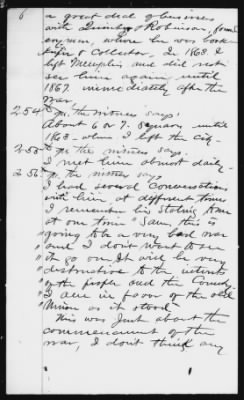 6
a great deal of business
with Quimby & Robinson, found
was book
Kep'r & Collector. In 1863 I
left Memphis and did not
see him again until
1867. immediately after the
war.
254th p. the witness says;
About 6 or 7. years, until
1863 - when I left the city.
255th p. the witness says.
I met him almost daily.
256th p. the witness says
I had several Conversations
with him, at different times
I remember his stating to me
at one time "Sam, this is
going to be a very bad war
and I don't want to see
it go on. It will be very
destructive to the interests
of the people and the County.
I am in favor of the old
Union as it stood."
This was Just about the
commencement of the
war, I don't think any